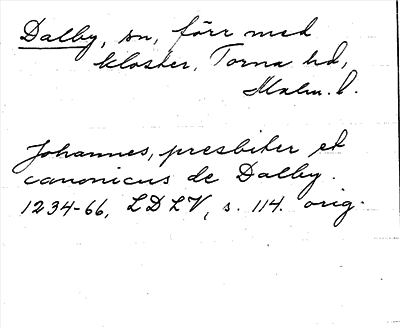 Dalby, sn, förr med
kloster, Torna hd,
Malm. l.
Johannes, presbiter et
canonicus de Dalby.
1234-66, LDLV, s. 114. orig.